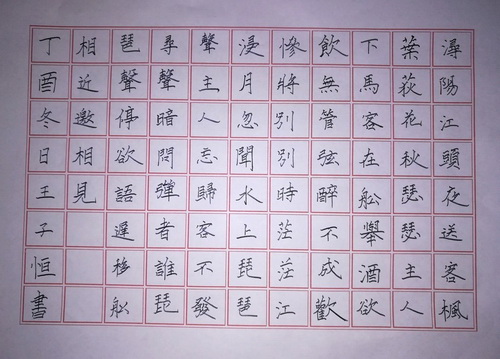 潯陽江頭夜送客楓
葉荻花秋瑟瑟主人
下馬客在舩舉酒欲
飲無管弦醉不成歡
慘將別別時茫茫江
浸月忽聞水上琵琶
聲主人忘歸客不發
尋聲暗問彈者誰琵
琶聲停欲語遲移舩
相近邀相見
丁酉冬日王子恒書